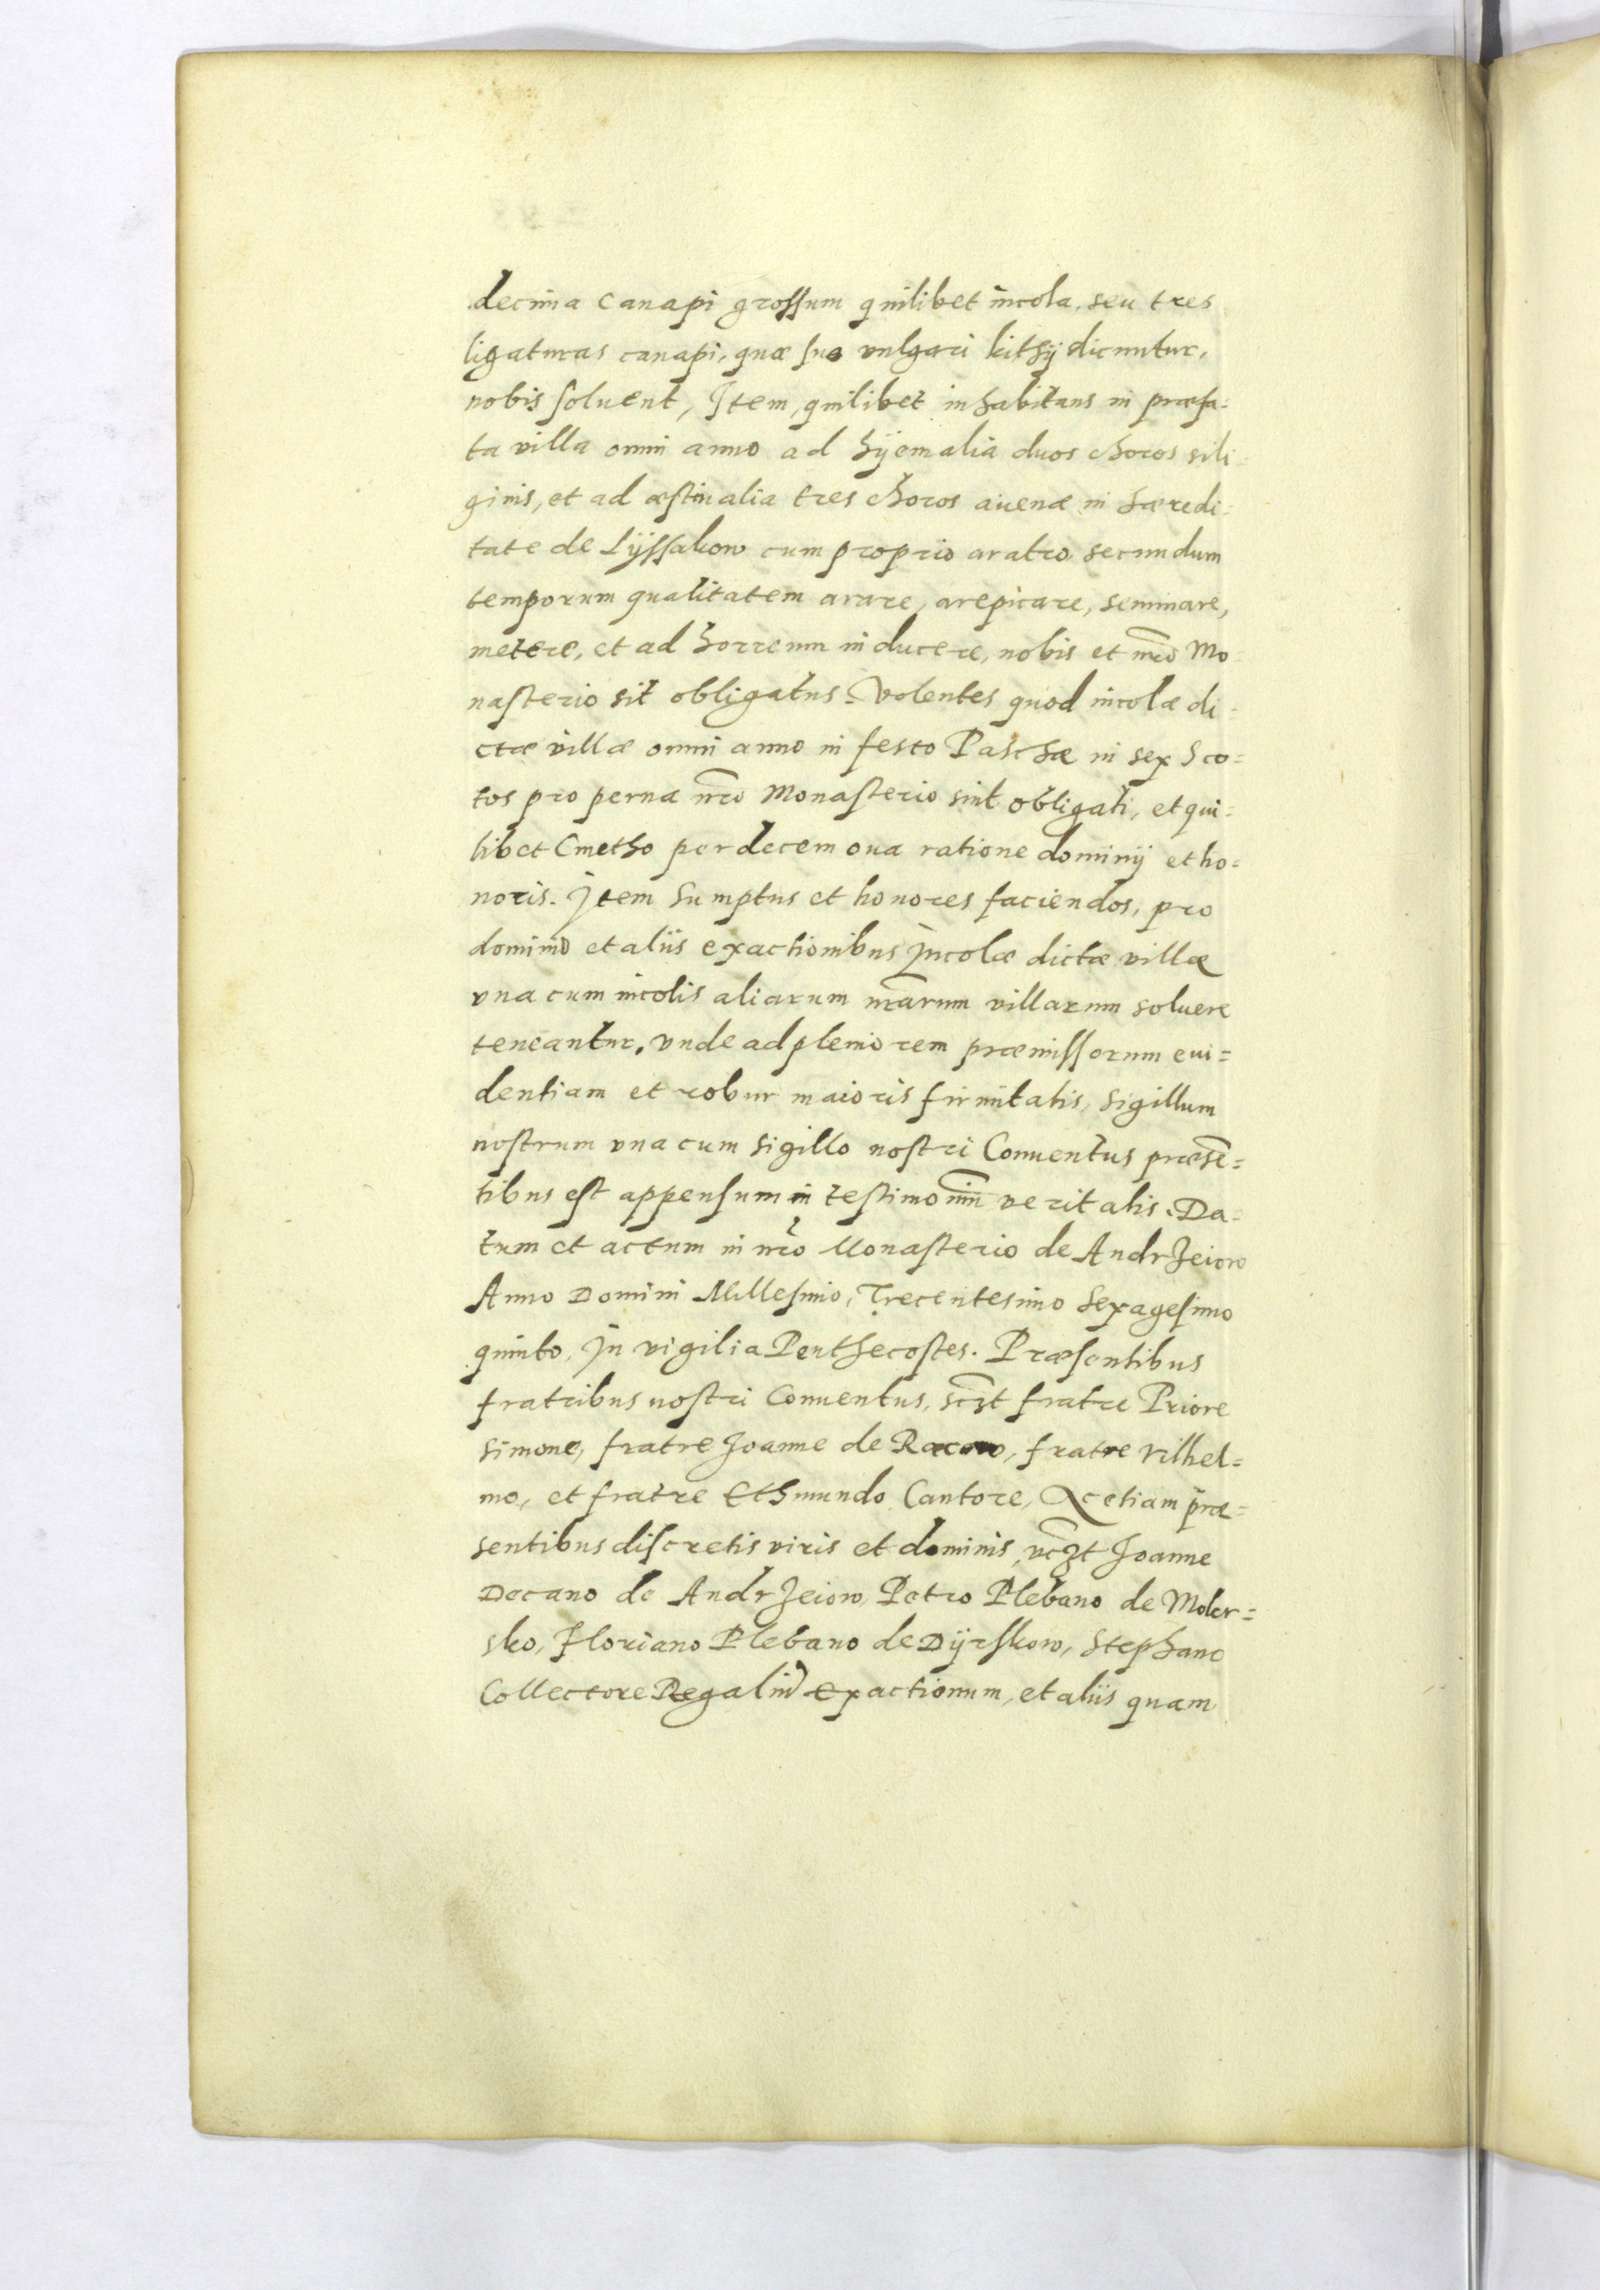 decima canapi grossum quilibet incola, seu tres
ligaturas canapi, quæ suo vulgari kithÿ dicuntur,
nobis soluent, Item, quilibet inhabitans in præfa=
ta villa omni anno ad hÿemalia duos choros sili=
ginis, et ad æstiualia tres choros auenæ in hæredi=
tate de Lÿssakow cum proprio aratro secundum
temporum qualitatem arare, arepicare, seminare,
metere, et ad horreum inducere, nobis et nr̃o Mo=
nasterio sit obligatus. Volentes quod incolæ di=
ctæ villæ omni anno in festo Paschæ in sex Sco=
tos pro perna nr̃o Monasterio sint obligati, et qui=
libet Cmetho per decem oua ratione dominÿ et ho=
noris. Item sumptus et honores faciendos, pro
domino et aliis exactionibus Incolæ dictæ villæ
vna cum incolis aliarum nr̃arum villarum soluere
teneantur. Vnde ad pleniorem præmissorum eui=
dentiam et robur maioris firmitatis, sigillum
nostrum vna cum sigillo nostri Conuentus præsẽ=
tibus est appensum in testimoniũ veritatis. Da=
tum et actum in nr̃o Monasterio de Andrzeiow
Anno Domini Millesimo, Trecentesimo Sexagesimo
quinto, In vigilia Penthecostes. Præsentibus
fratribus nostri Conuentus, sc̃zt fratre Priore
Simone, fratre Joanne de Racow, fratre Vilhel=
mo, et fratre Ethmundo Cantore, Ac etiam præ=
sentibus discretis viris et dominis, vc̃zt Joanne
Decano de Andrzeiow, Petro Plebano de Moker=
sko, Floriano Plebano de Dÿrskow, Stephano
Collectore Regaliũ exactionum, et aliis quam